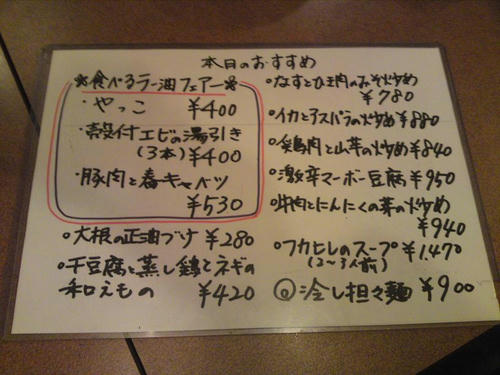 本日のおすすめ
※食べるラー油フェアー※
・やっこ ¥400
・殻付エビの湯引き
(3本)¥400
・豚肉と春キャベツ
¥530
○大根の正油づけ ¥280
○干豆腐と蒸し鶏とネギの
和えもの ¥420
○なすとひき肉のみそ炒め
¥780
○イカとアスパラの炒め¥880
○鶏肉と山芋の炒め¥840
○激辛マーボー豆腐¥950
○牛肉とにんにくの芽の炒め
¥940
○フカヒレのスープ ¥1,470
(2〜3人前)
◎冷し担々麺 ¥900